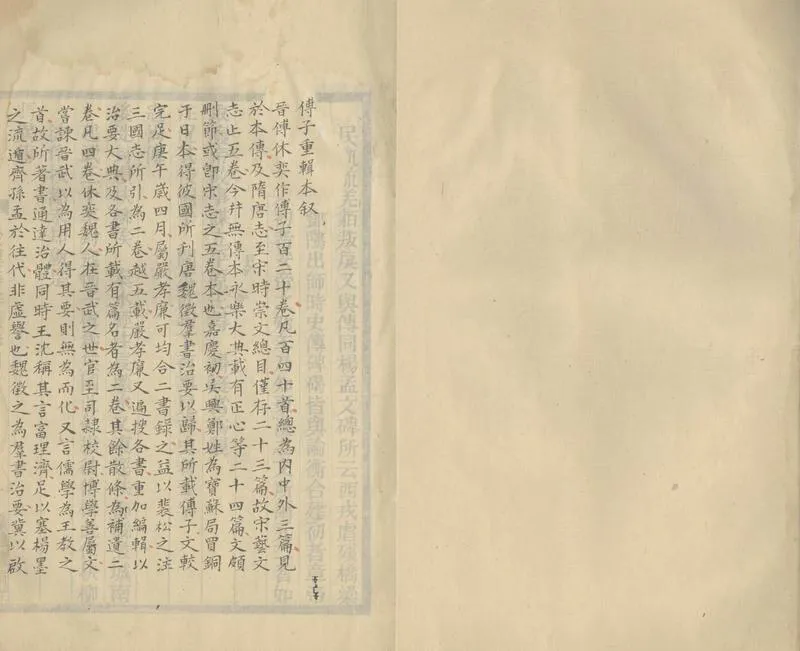 傅子重輯本叙
晉傅休奕作傅子百二十卷凡百四十首總為內中外三篇見
於本傳及隋唐志至宋時崇文總目僅存二十三篇故宋藝文
志止五卷今幷無傳本永樂大典載有正心等二十四篇文頗
刪節或卽宋志之五卷本也嘉慶初吳興鄭姓為寶蘇局冒銅
于日本得彼國所刊唐魏徵羣書治要以歸其所載傅子文較
完足庚午歲四月屬嚴孝廉可均合二書錄之益以裴松之注
三國志所引為二卷越五載嚴孝廉又遍搜各書重加編輯以
治要大典及各書所載有篇名者為二卷其餘散條為補遺二
卷凡四卷休奕魏人在晉武之世官至司隸校尉博學善屬文
嘗諫晉武以為用人得其要則無為而化又言儒學為王教之
首故所著書通達治體同時王沈稱其言富理濟足以塞楊墨
之流遁齊孫孟於往代非虛譽也魏徵之為羣書治要冀以啟